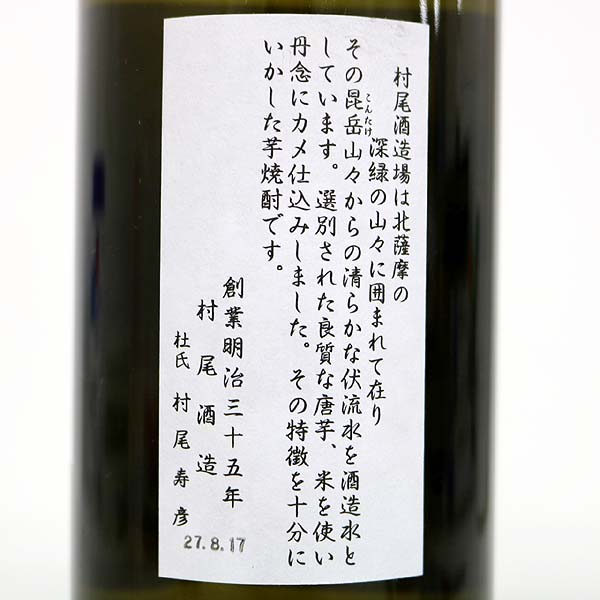 村尾酒造場は北薩摩の
深緑の山々に囲まれて在り
その昆岳山々からの清らかな伏流水を酒造水と
こんたけ
しています。選別された良質な唐芋、米を使い
丹念にカメ仕込みしました。その特徴を十分に
いかした芋焼酎です。
創業明治三十五年
村尾酒造
杜氏 村尾寿彦
27.8.17